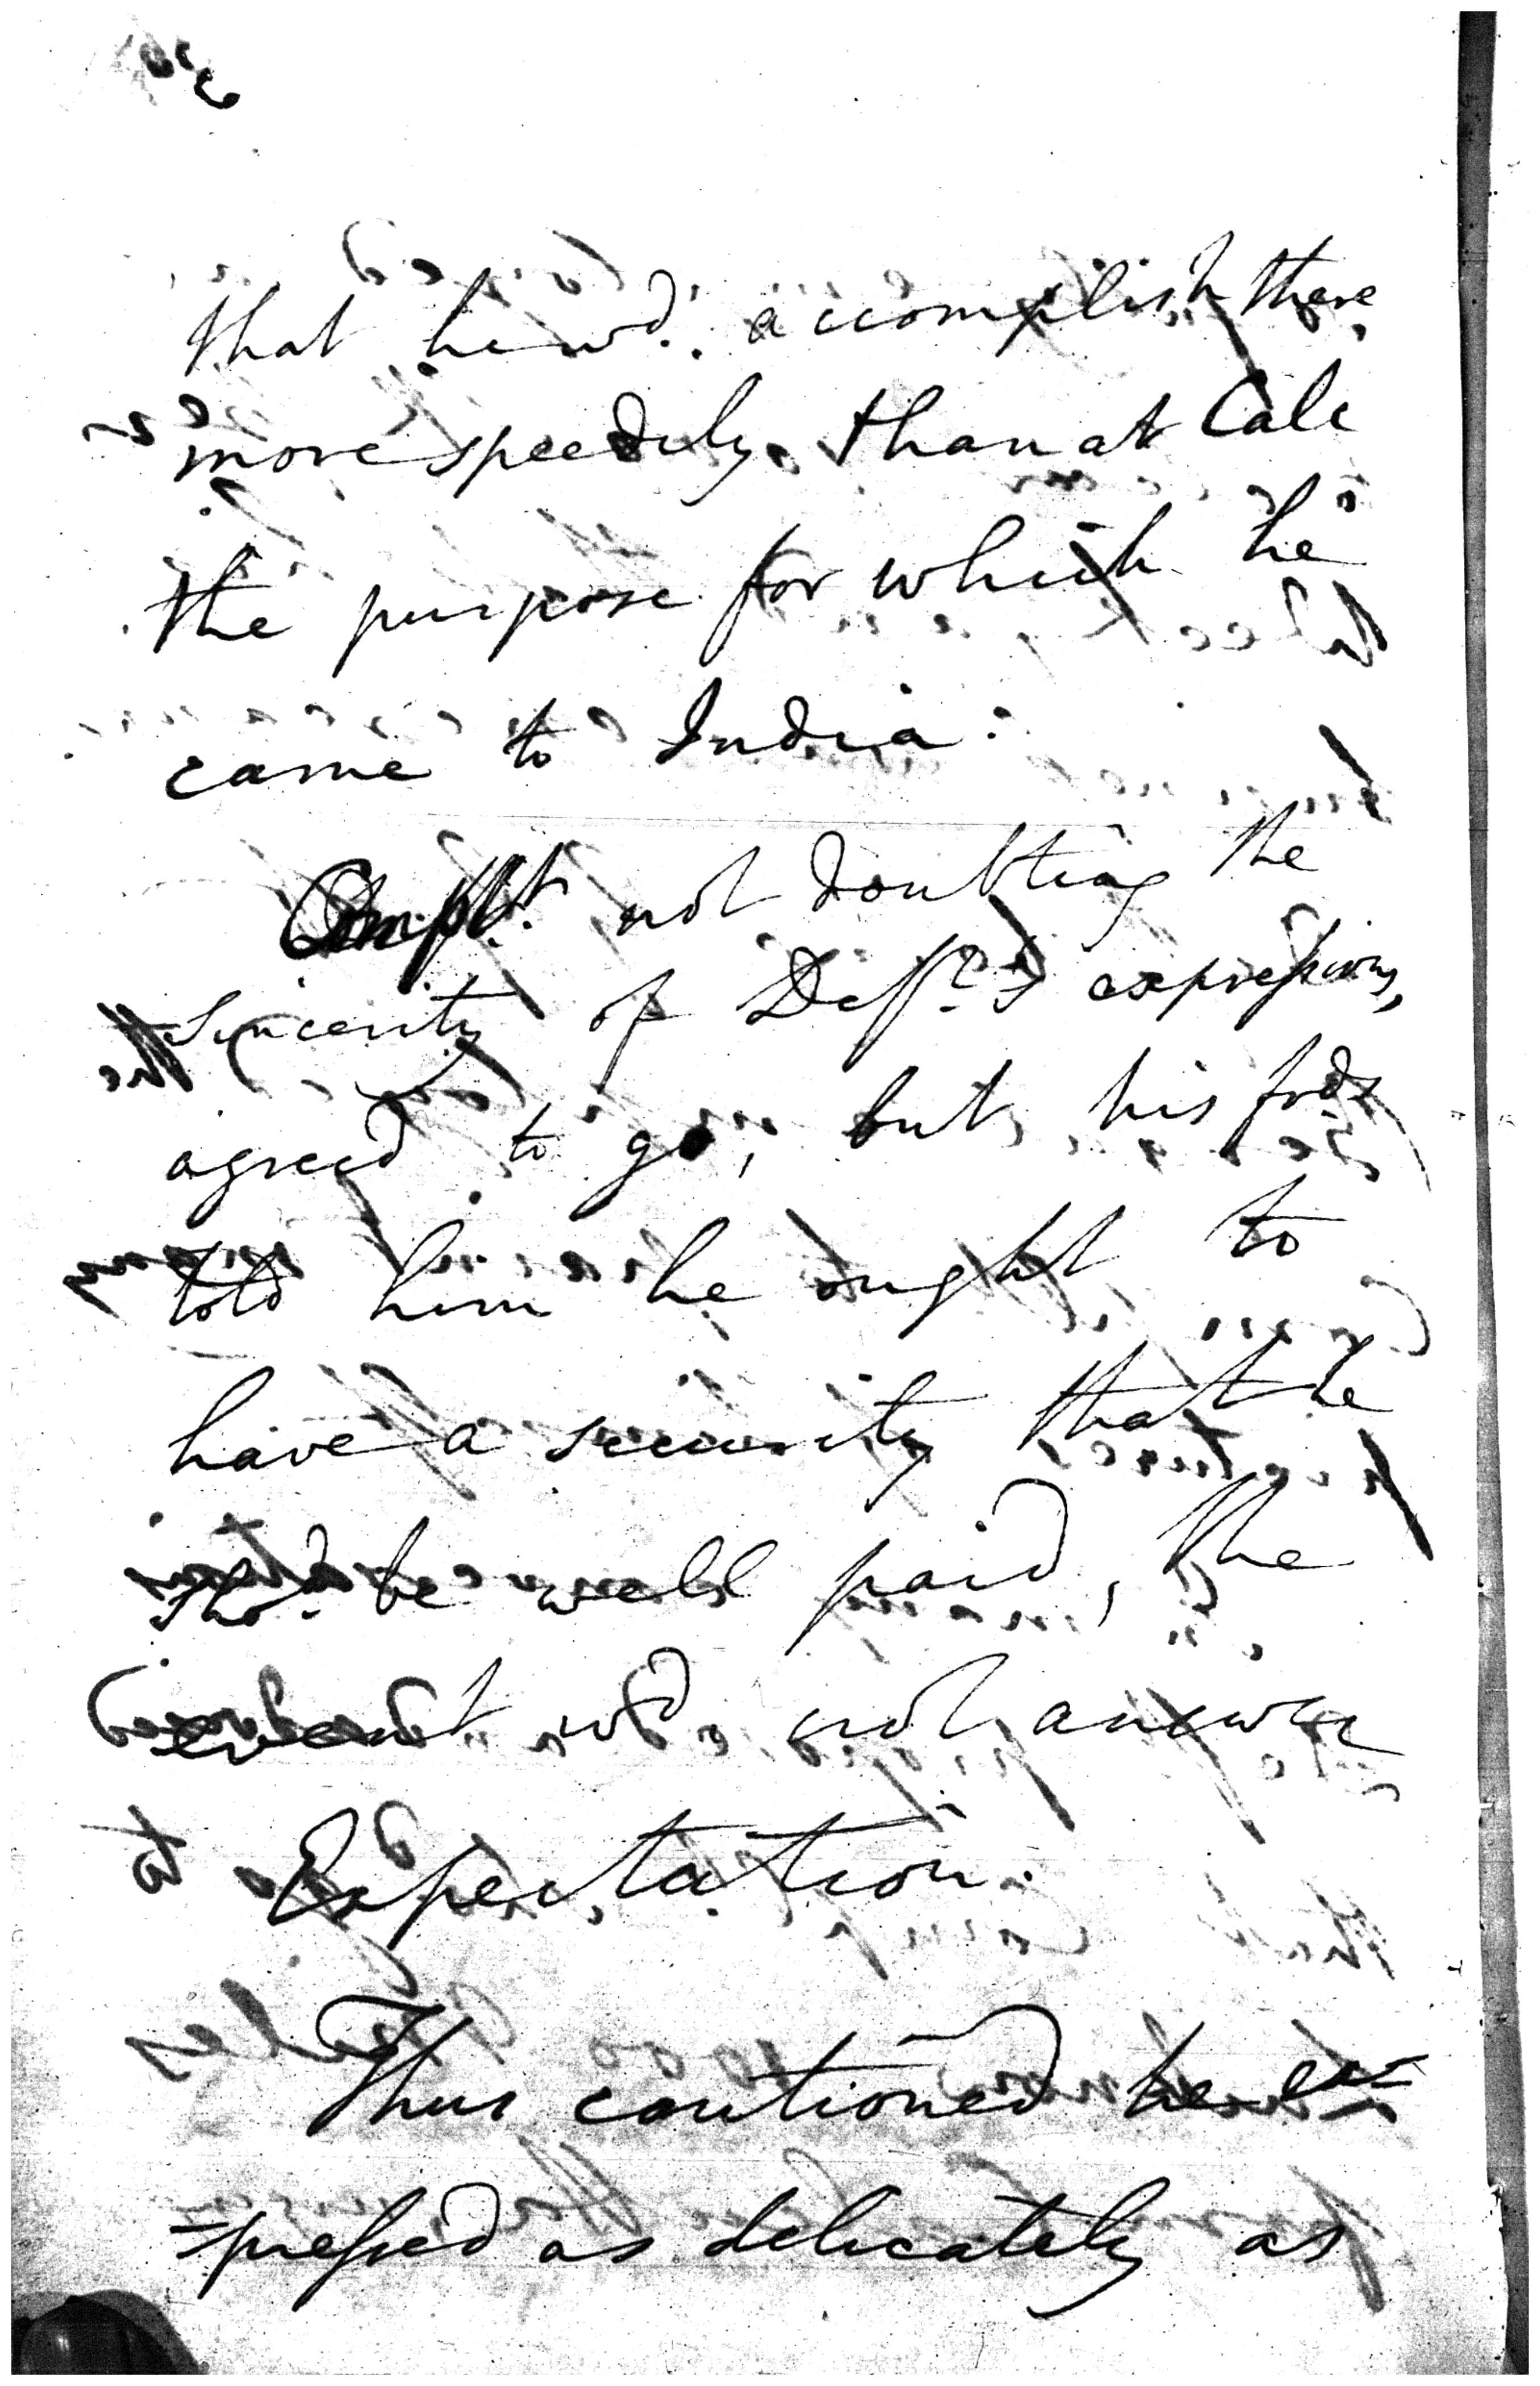 that he wd. accomplish there
more speedily than at Calc
the purpose for which he
came to India.
Complt. not doubting the
sincerity of Deft.'s expressions,
agreed to go, but his frds
told him he ought to
have a security that he
shd. be well paid, the
event wd. not answer
Expectation.
Thus cautioned he ex=
=pressed as delicately as